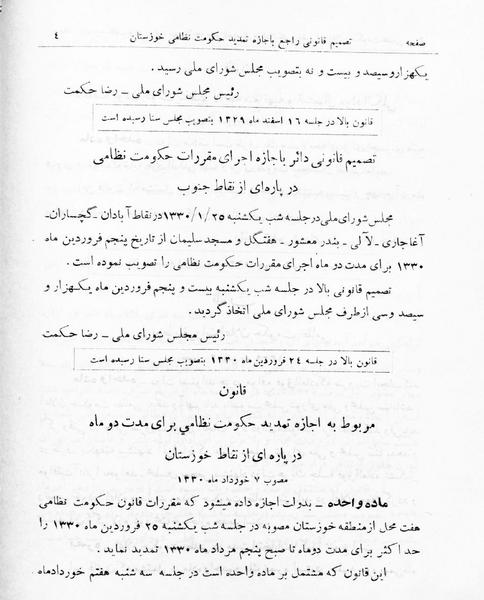 صفحه تصمیم قانونی راجع باجازه تمدید حکومت نظامی خوزستان ٤
یکهزار و سیصد و بیست و نه بتصویب مجلس شورای ملی رسید .
رئیس مجلس شورای ملی ـ رضا حکمت
قانون بالا در جلسه ١٦ اسفند ماه ١٣٢٩ بتصویب مجلس سنا رسیده است
تصمیم قانونی دائر باجازه اجرای مقررات حکومت نظامی
در پاره‌ای از نقاط جنوب
مجلس شورای ملی در جلسه شب یکشنبه ١٣٣٠/١/٢٥ در نقاط آبادان ـ گچساران ـ
آغاجاری ـ لالی ـ بندر معشور ـ هفتگل و مسجد سلیمان از تاریخ پنجم فروردین ماه
١٣٣٠ برای مدت دو ماه اجرای مقررات حکومت نظامی را تصویب نموده است .
تصمیم قانونی بالا در جلسه شب یکشنبه بیست و پنجم فروردین ماه یکهزار و
سیصد و سی از طرف مجلس شورای ملی اتخاذ گردید .
رئیس مجلس شورای ملی ـ رضا حکمت
قانون بالا در جلسه ٢٤ فروردین ماه ١٣٣٠ بتصویب مجلس سنا رسیده است
قانون
مربوط به اجازه تمدید حکومت نظامی برای مدت دو ماه
در پاره‌ای از نقاط خوزستان
مصوب ٧ خرداد ماه ١٣٣٠
ماده واحده ـ بدولت اجازه داده میشود که مقررات قانون حکومت نظامی
هفت محل از منطقه خوزستان مصوبه در جلسه شب یکشنبه ٢٥ فروردین ماه ١٣٣٠ را
حد اکثر برای مدت دو ماه تا صبح پنجم مرداد ماه ١٣٣٠ تمدید نماید .
این قانون که مشتمل بر ماده واحده است در جلسه سه شنبه هفتم خردادماه